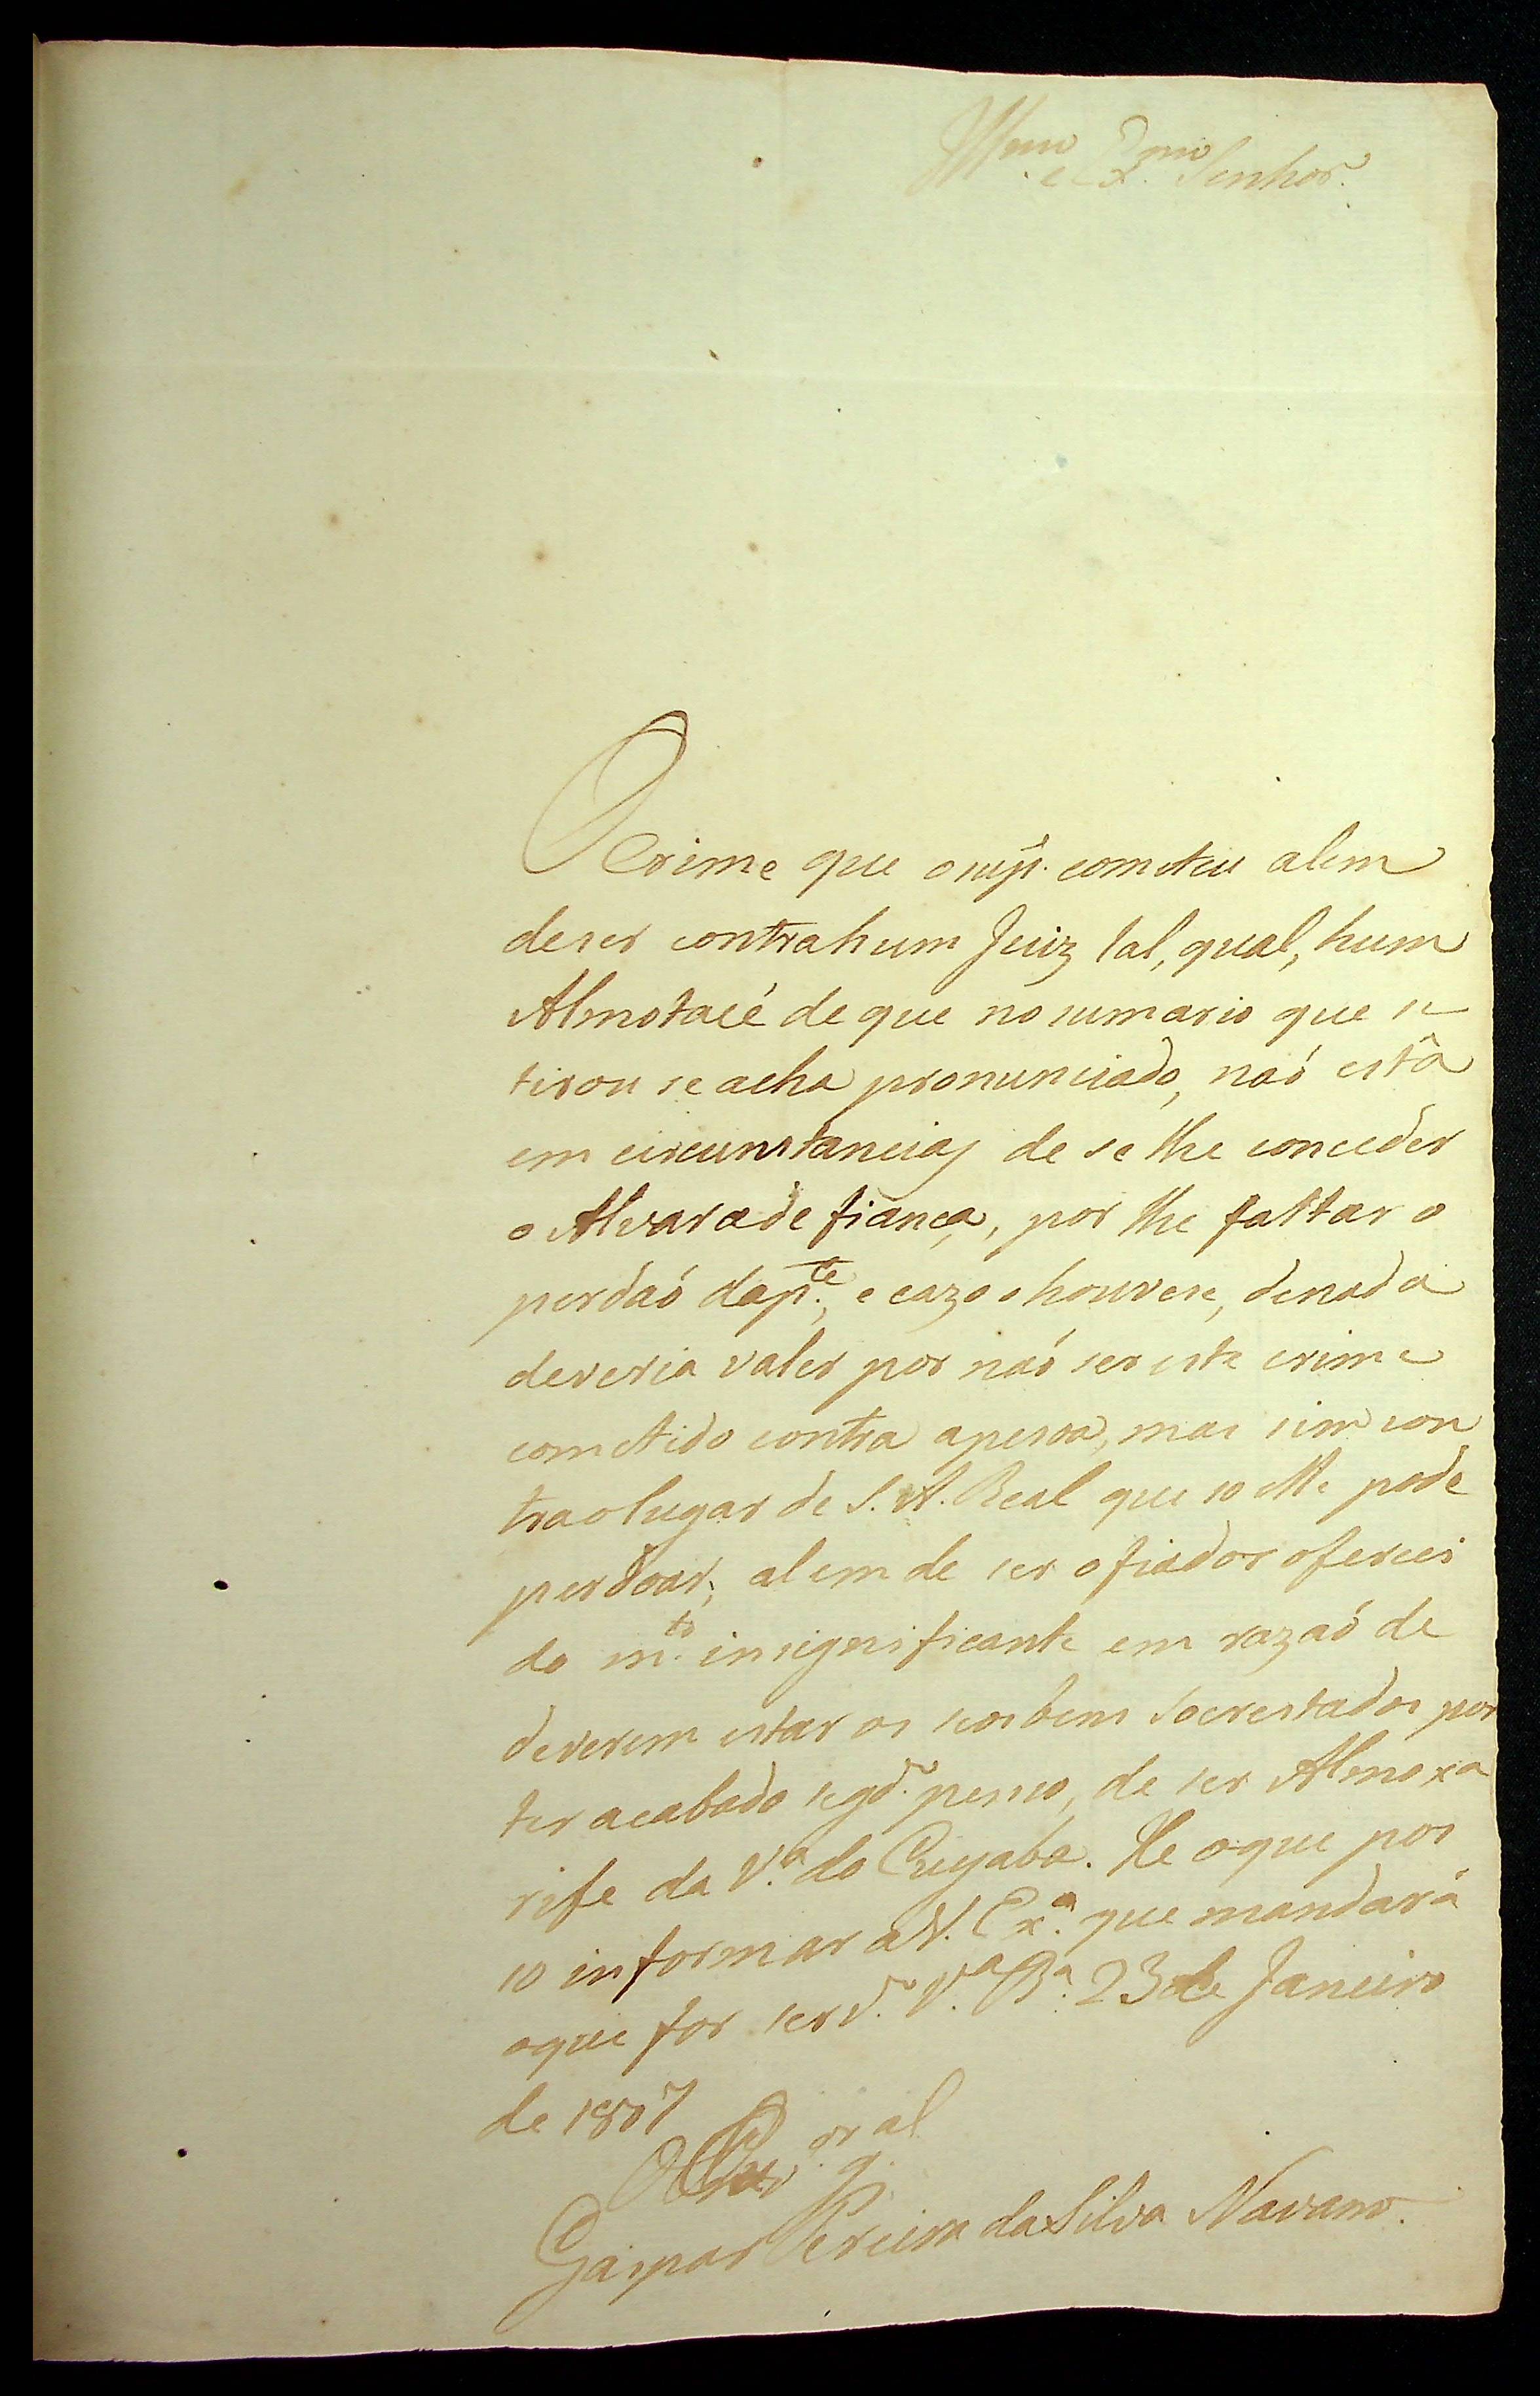 Illmo e Exmo Senhor.
O Crime que o sup. cometeu alem
de ser contra hum Juiz tal, qual, hum
Almotacé de que no sumario que se
tirou se acha pronunciado, naó está
em circunstancias de se lhe conceder
o Alvara de fiança, por lhe faltar o
perdaó da pte., e cazo o houvese, de nada
deveria valer por naó ser este crime
cometido contra a pesoa, mas sim con
tra o lugar de S. A. Real que so Elle pode
perdoar; alem de ser o fiador ofereci
do mto. insignificante em razaó de
deverem estar os seos bens socrestados por
ter acabado segdo. penso, de ser Almoxa
rife da Va. do Cuyaba. He o que pos
so informar a V. Exa. que mandará
o que for servdo. Va. Ba. 23 de Janeiro
de 1807
O Ouvor. gal
Gaspar Pereira da Silva Navarro.